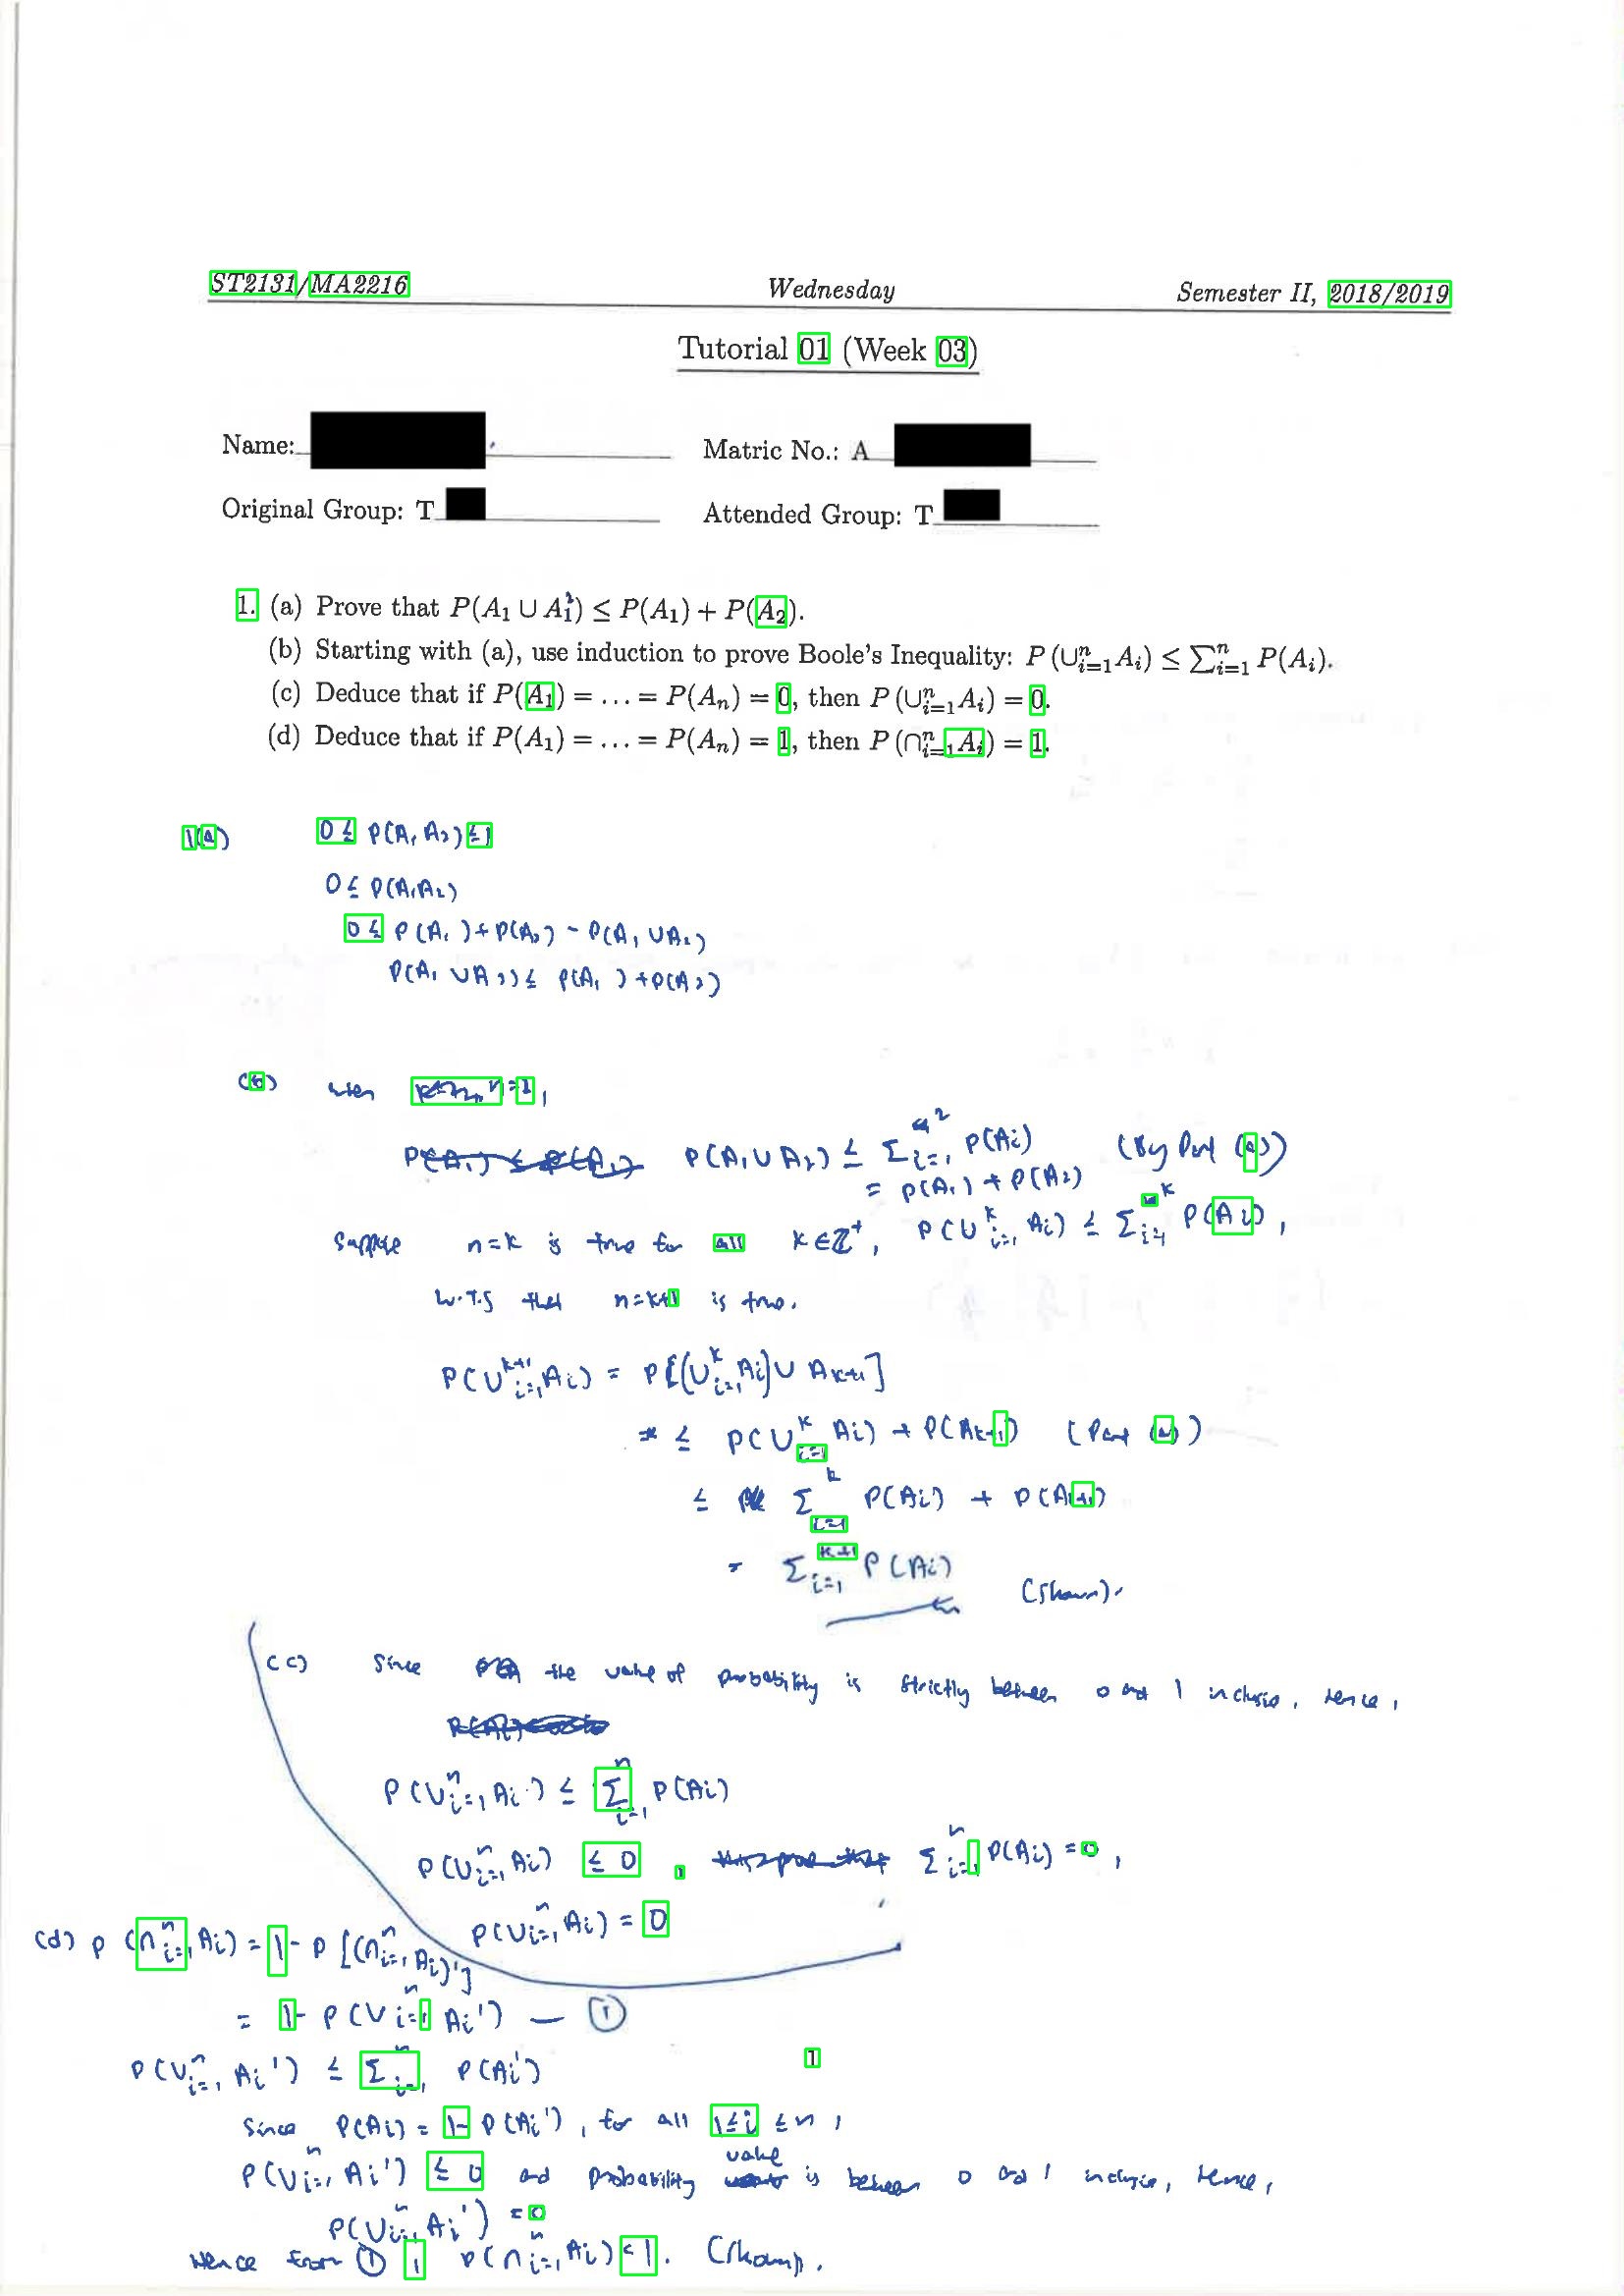 ST2131/MA2216 Wednesday Semester II, 2018/2019
Tutorial 01 (Week 03)
Name: Matric No.: A
Original Group: T Attended Group: T
1. (a) Prove that P(A₁ ∪ A₁²) ≤ P(A₁) + P(A₂).
(b) Starting with (a), use induction to prove Boole's Inequality: P (∪ⁿᵢ₌₁Aᵢ) ≤ ∑ⁿᵢ₌₁ P(Aᵢ).
(c) Deduce that if P(A₁) = ... = P(Aₙ) = 0, then P (∪ⁿᵢ₌₁Aᵢ) = 0.
(d) Deduce that if P(A₁) = ... = P(Aₙ) = 1, then P (∩ⁿᵢ₌₁Aᵢ) = 1.
1(a) 0 ≤ P(A₁ A₂) ≤ 1
0 ≤ P(A₁A₂)
0 ≤ P(A₁) + P(A₂) - P(A₁ ∪ A₂)
P(A₁ ∪ A₂) ≤ P(A₁) + P(A₂)
(b) when n=2,
P(A₁ ∪ A₂) ≤ ∑²ᵢ₌₁ P(Aᵢ) (By Part (a))
= P(A₁) + P(A₂)
Suppose n=k is true for all k ∈ ℤ⁺, P(∪ᵏᵢ₌₁ Aᵢ) ≤ ∑ᵏᵢ₌₁ P(Aᵢ),
W.T.S that n=k+1 is true.
P(∪ᵏ⁺¹ᵢ₌₁ Aᵢ) = P[(∪ᵏᵢ₌₁ Aᵢ) ∪ Aₖ₊₁]
≤ P(∪ᵏᵢ₌₁ Aᵢ) + P(Aₖ₊₁) (Part (a))
≤ ∑ᵏᵢ₌₁ P(Aᵢ) + P(Aₖ₊₁)
= ∑ᵏ⁺¹ᵢ₌₁ P(Aᵢ) (Shown).
(c) Since the value of probability is strictly between 0 and 1 inclusive, hence,
P(∪ⁿᵢ₌₁ Aᵢ) ≤ ∑ⁿᵢ₌₁ P(Aᵢ)
P(∪ⁿᵢ₌₁ Aᵢ) ≤ 0, ∑ⁿᵢ₌₁ P(Aᵢ) = 0,
P(∪ⁿᵢ₌₁ Aᵢ) = 0
(d) P(∩ⁿᵢ₌₁ Aᵢ) = 1 - P[(∩ⁿᵢ₌₁ Aᵢ)']
= 1 - P(∪ⁿᵢ₌₁ Aᵢ') — ①
P(∪ⁿᵢ₌₁ Aᵢ') ≤ ∑ⁿᵢ₌₁ P(Aᵢ')
1
Since P(Aᵢ) = 1 - P(Aᵢ'), for all 1 ≤ i ≤ n,
P(∪ⁿᵢ₌₁ Aᵢ') ≤ 0 and probability value is between 0 and 1 inclusive, hence,
P(∪ⁿᵢ₌₁ Aᵢ') = 0
Hence from ①, P(∩ⁿᵢ₌₁ Aᵢ) = 1. (Shown).